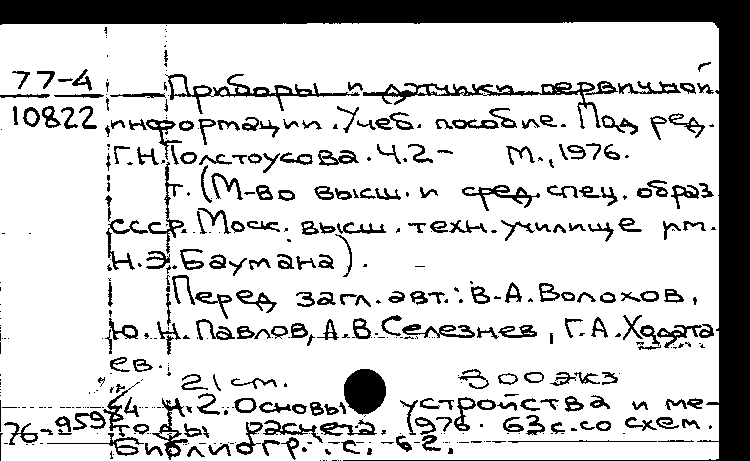 77-4 Приборы и датчики первичной
10822 информации. Учеб. пособие. Под ред.
Г.Н.Толстоусова. Ч.2- М., 1976.
т. (М-во высш. и сред. спец. образ
СССР. Моск. высш. техн. училище им.
Н.Э.Баумана).
Перед загл. авт.: В.А.Волохов,
Ю.Н.Павлов, А.В.Селезнев, Г.А.Ходата-
ев.
21 см. 300 экз
Ч.2. Основы устройства и ме-
76-959 тоды расчета. 1976. 63 с. со схем.
Библиогр.: с. 62.